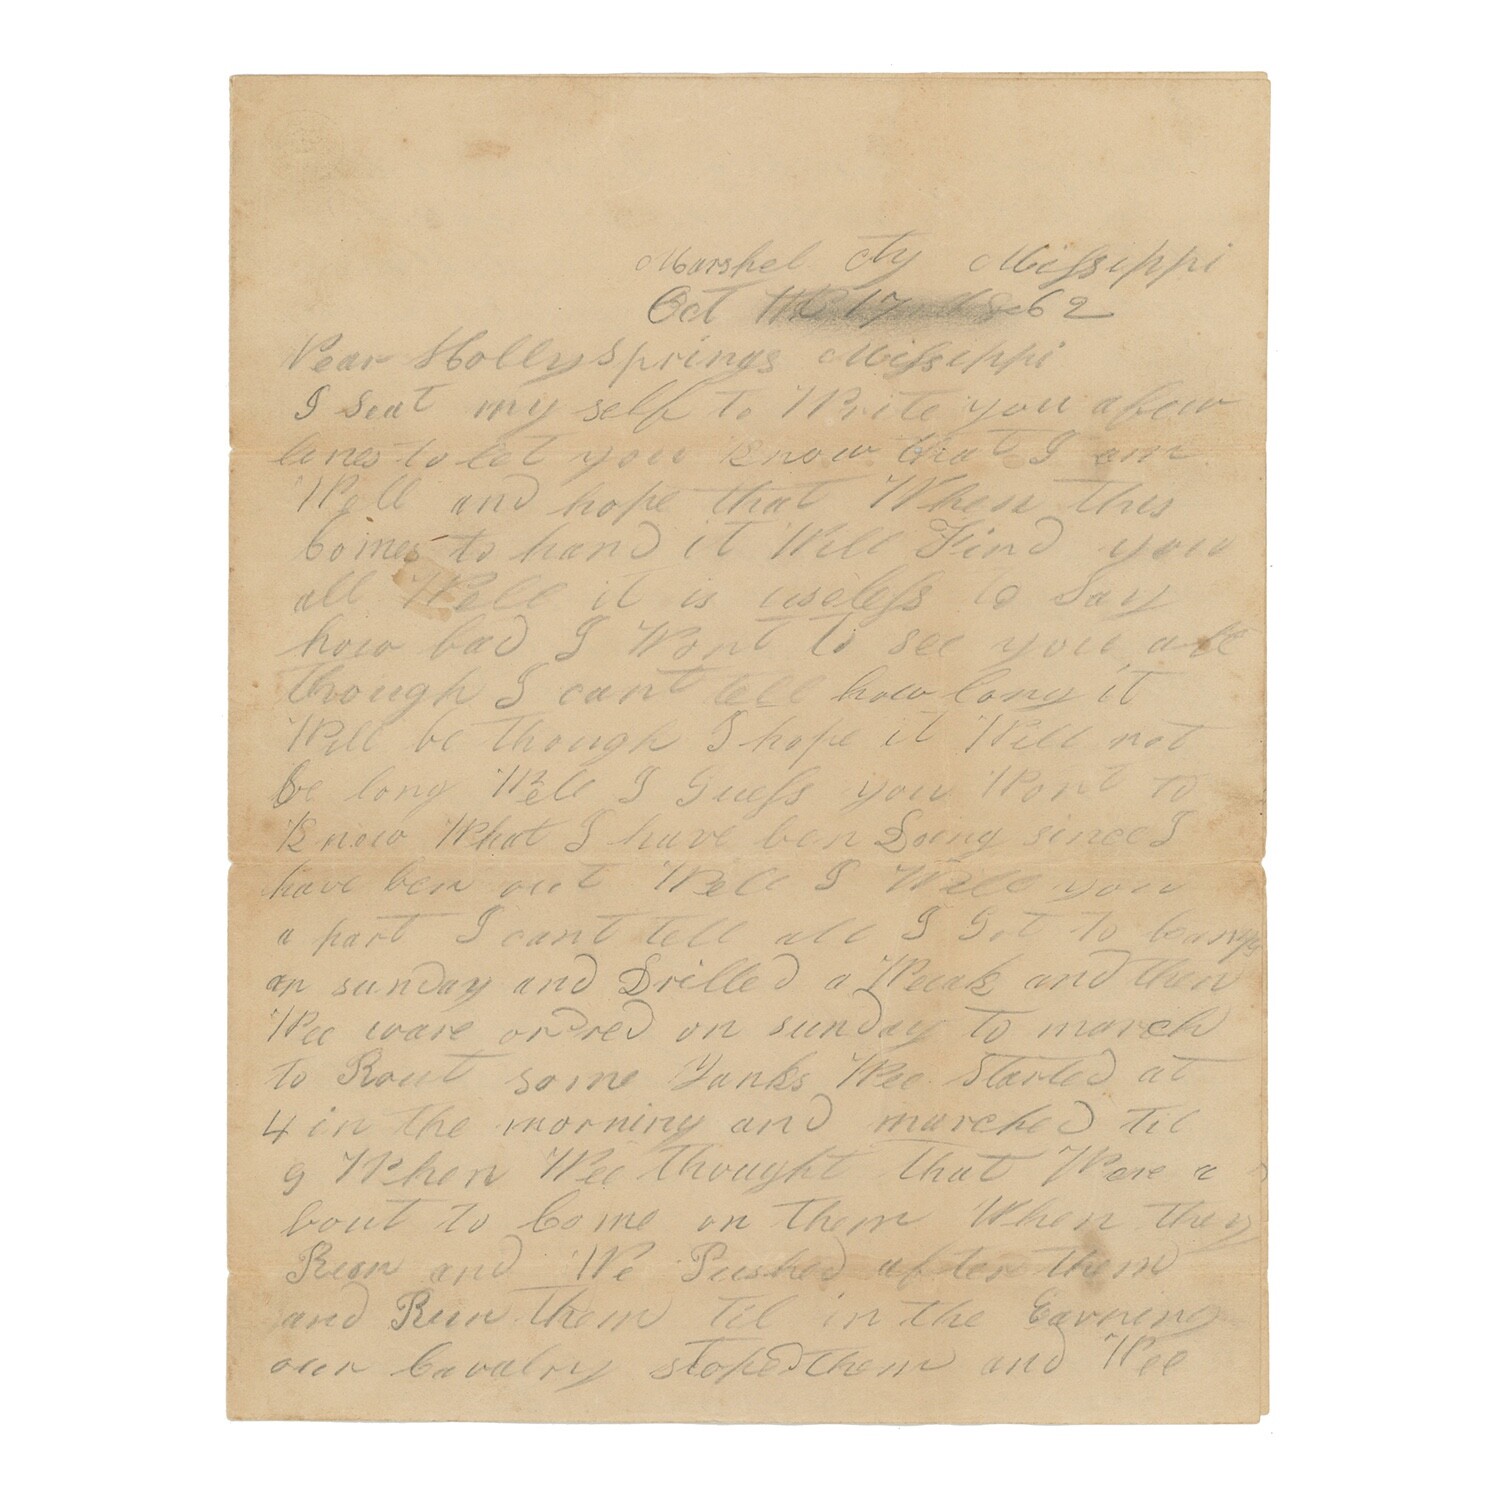 Marshel cty Missippi
Oct the 17 1862
Near Holly Springs Missippi
I Seat my self to Write you a few
lines to let you Know that I am
Well and hope that When this
Comes to hand it Will Find you
all Well it is useless to Say
how bad I Wont to see you all
though I cant tell how long it
Will be though I hope it Will not
be long Well I Guess you Wont to
Know What I have ben Doing since I
have ben out Well I Will you
a part I cant tell all I Got to camp
on sunday and Drilled a Weak and then
Wee ware ordred on sunday to march
to Rout some Yanks Wee Started at
4 in the morning and marched til
9 When Wee thought that Ware a
bout to Come on them When they
Run and We Pushed after them
and Run them til in the Eavning
our Cavalry stoped them and Wee